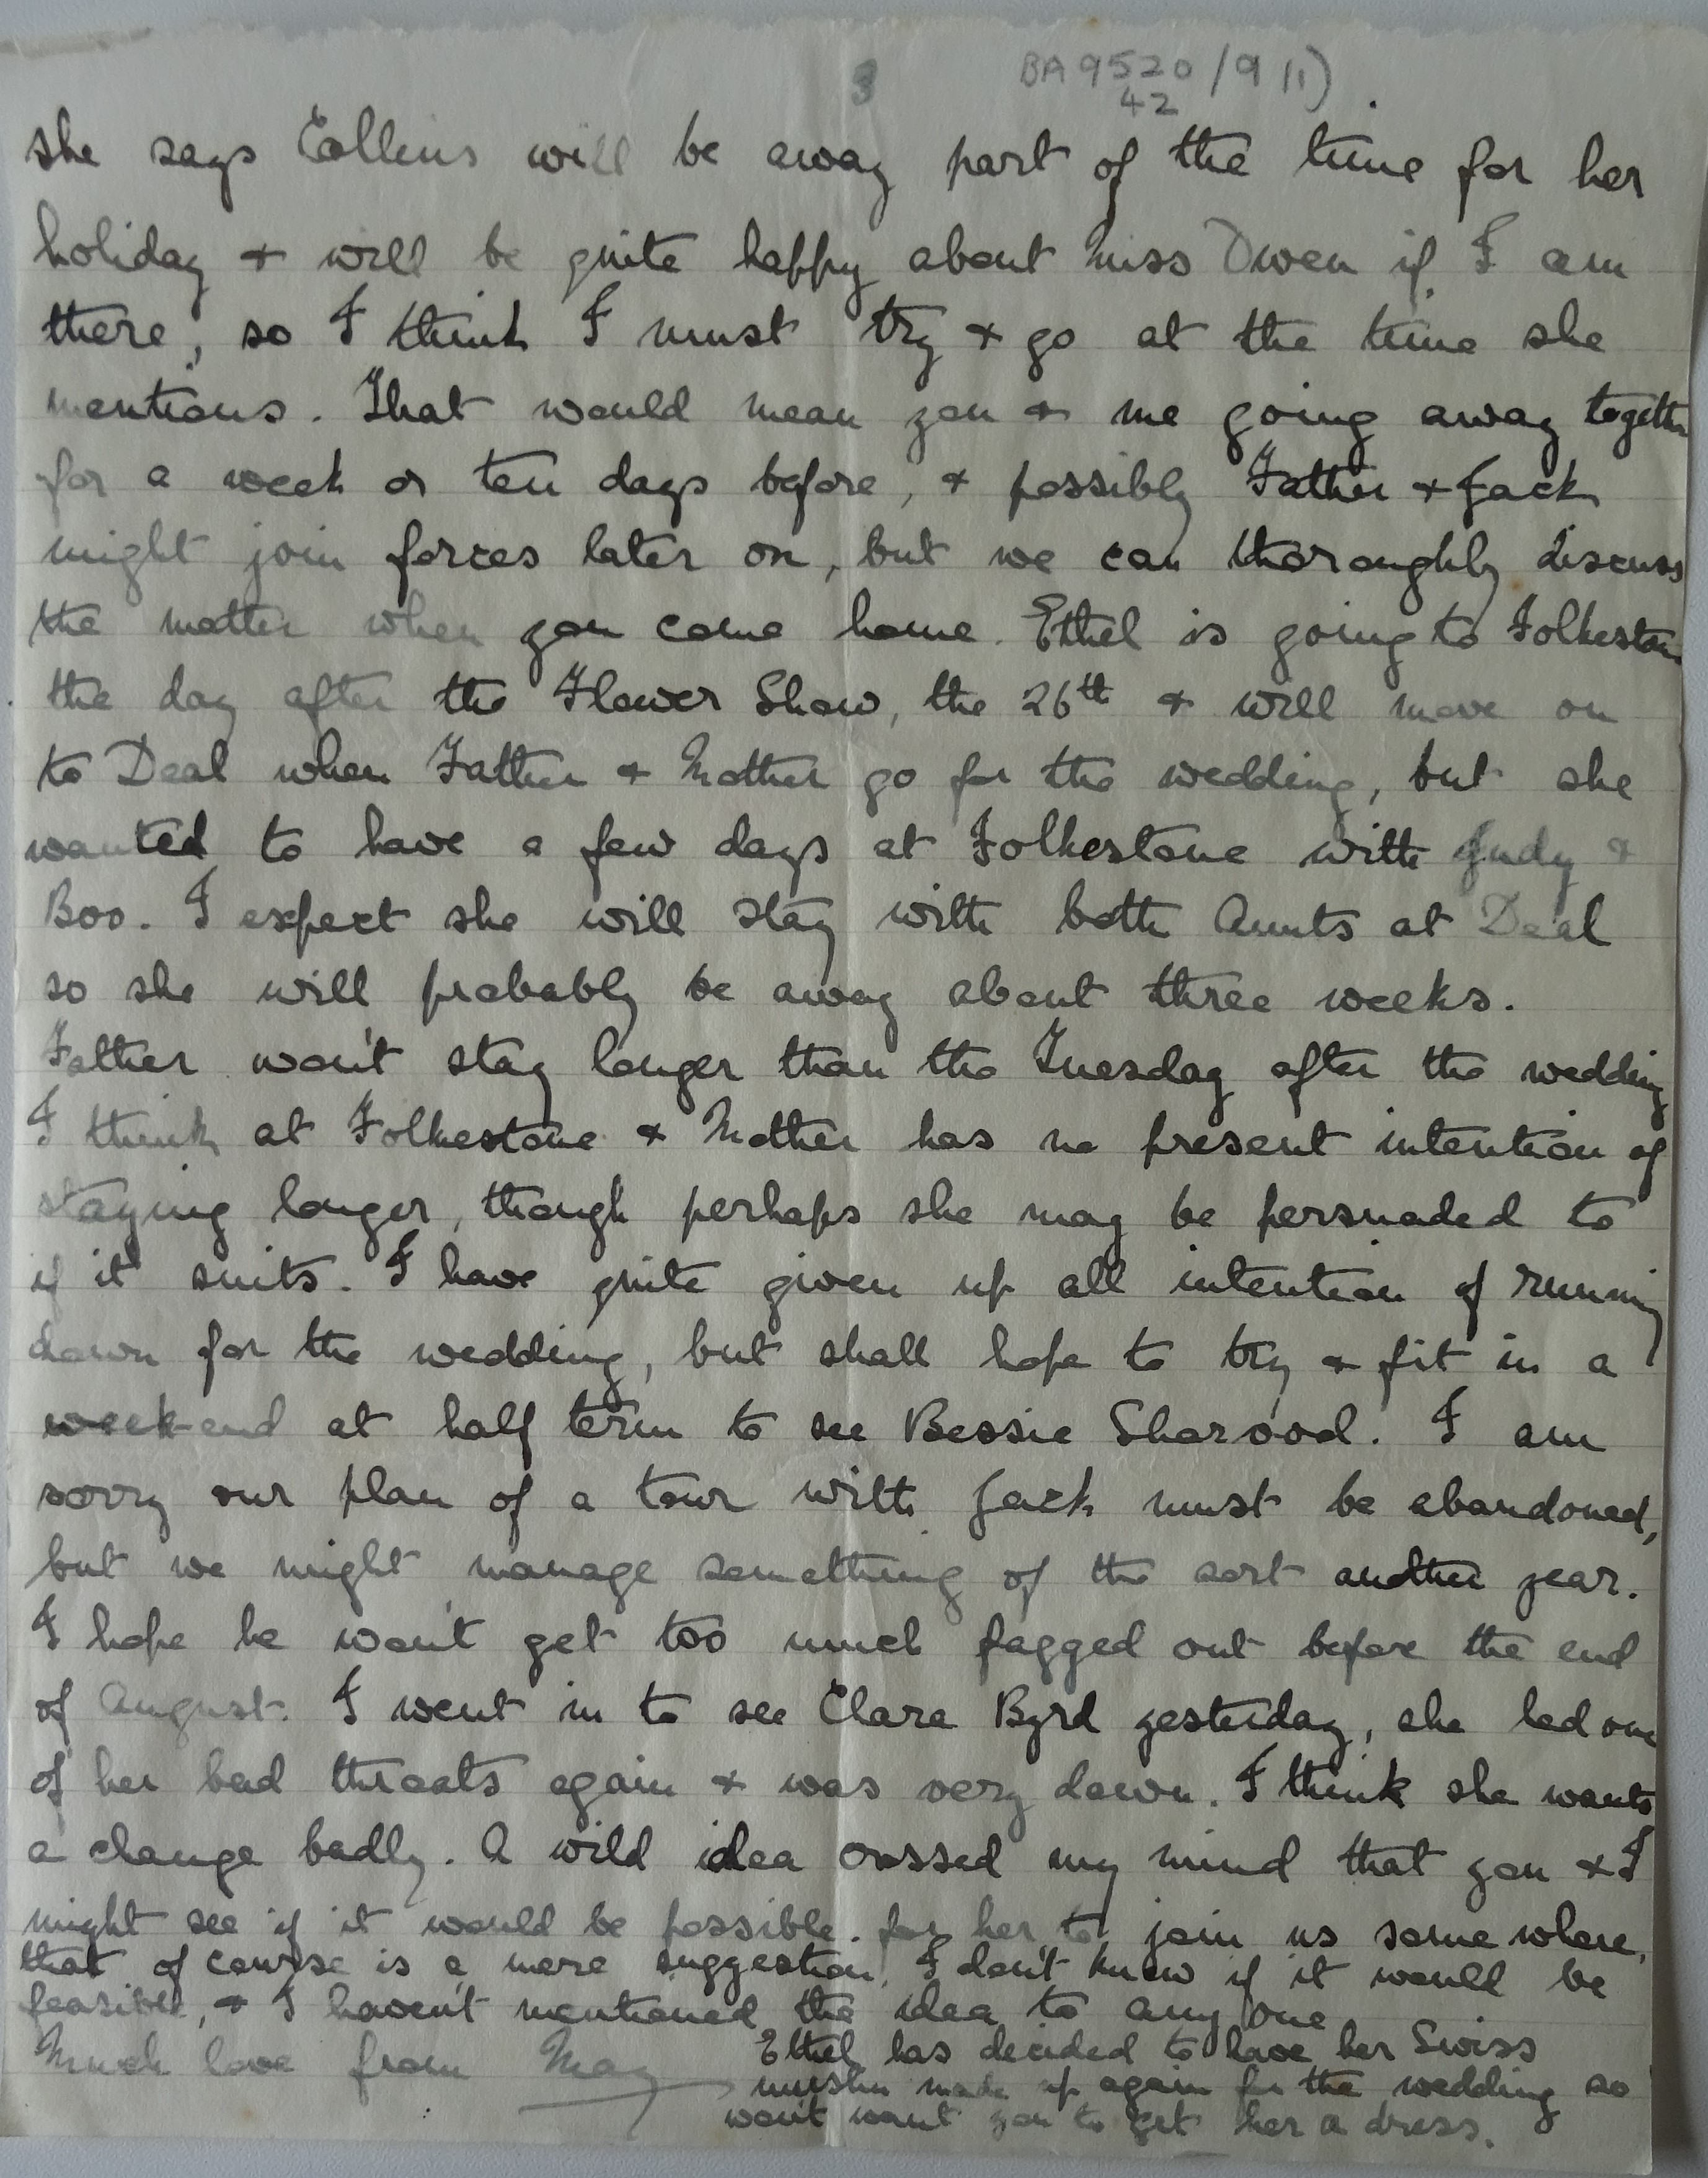 3
BA 9520/9 (1)
42
she says Collins will be away part of the time for her
holiday + will be quite happy about Miss Owen if I am
there, so I think I must try + go at the time she
mentions. That would mean you + me going away together
for a week or ten days before, + possibly Father + Jack
might join forces later on, but we can thoroughly discuss
the matter when you come home. Ethel is going to Folkestone
the day after the Flower Show, the 26th + will move on
to Deal when Father + Mother go for the wedding, but she
wanted to have a few days at Folkestone with Judy +
Boo. I expect she will stay with both Aunts at Deal
so she will probably be away about three weeks.
Father won't stay longer than the Tuesday after the wedding
I think at Folkestone + Mother has no present intention of
staying longer, though perhaps she may be persuaded to
if it suits. I have quite given up all intention of running
down for the wedding, but shall hope to try + fit in a
week-end at half term to see Bessie Sharood. I am
sorry our plan of a tour with Jack must be abandoned,
but we might manage something of the sort another year.
I hope he won't get too much fagged out before the end
of August. I went in to see Clara Byrd yesterday, she had one
of her bad throats again + was very down. I think she wants
a change badly. A wild idea crossed my mind that you + I
might see if it would be possible for her to join us somewhere,
that of course is a mere suggestion, I don't know if it would be
feasible, + I haven't mentioned the idea to any one
Much love from May
Ethel has decided to have her Swiss
muslin made up again for the wedding so
won't want you to get her a dress.